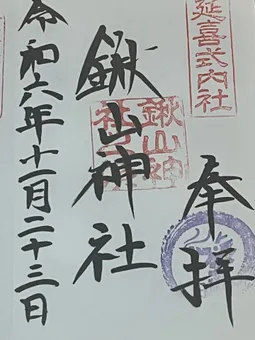 延喜式内社
奉拝
鍬山神社
令和六年十一月二十三日